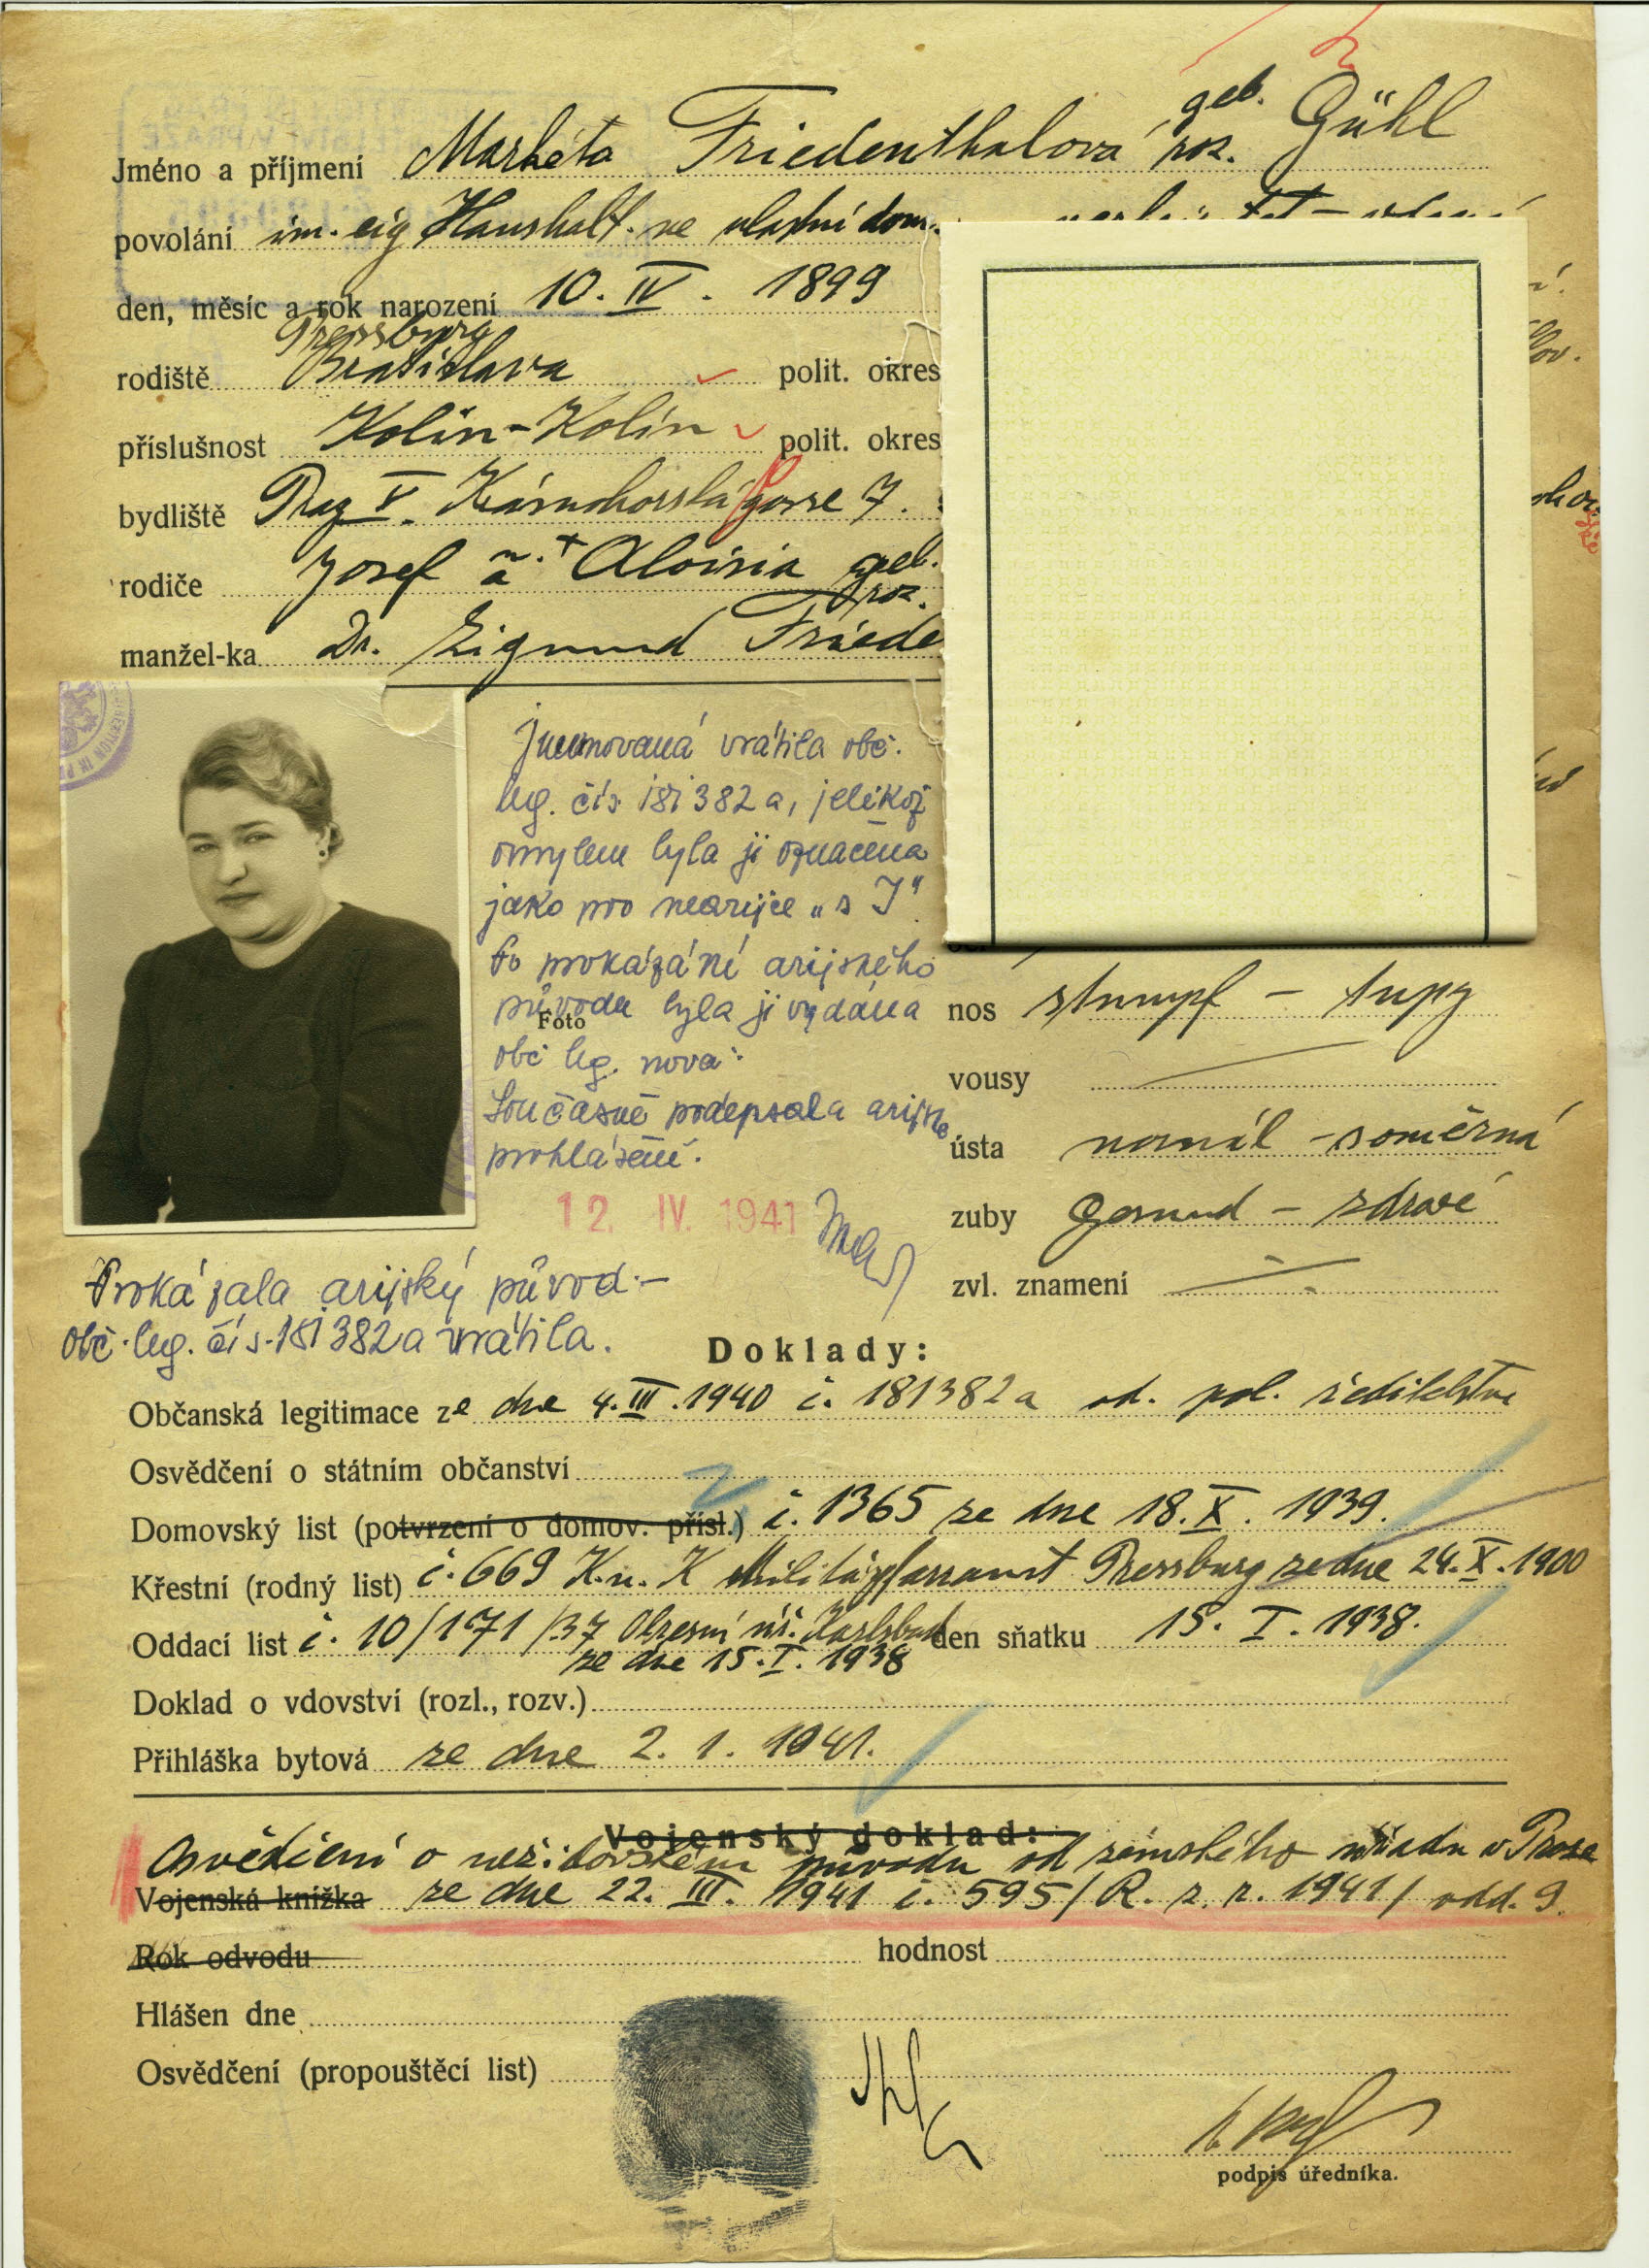 geb. Gühl
Jméno a příjmení Markéta Friedenthalová roz.
povolání im. eig Haushalt. ve vlastní dom.
den, měsíc a rok narození 10. IV. 1899
Pressburg
rodiště Bratislava polit. okres
příslušnost Kolin-Kolín polit. okres
bydliště Prag V. gasse 7.
rodiče Josef a Aloisia geb.
roz.
manžel-ka Dr. Zigmund Friede
Jmenovaná vrátila obč.
leg. čís 181382a, jelikož
omylem byla jí označena
jako pro nearijce „s J"
Po prokázání arijského
původu byla jí vydána
Foto
obč leg. nová.
Současně podepsala arijské
prohlášení.
12. IV. 1941
nos stumpf - tupý
vousy
ústa normál - souměrná
zuby gesund - zdravé
zvl. znamení
Prokázala arijský původ.-
obč. leg. čís. 181382a vrátila.
Doklady:
Občanská legitimace ze dne 4. III. 1940 č. 181382a od. pol. ředitelstva
Osvědčení o státním občanství
Domovský list (potvrzení o domov. přísl.) č. 1365 ze dne 18. X. 1939.
Křestní (rodný list) č. 669 K. u. K Militärpfarramt Pressburg ze dne 24. X. 1900
Oddací list č. 10/171/37 Okresní úř. Karlsbad den sňatku 15. I. 1938.
ze dne 15. I. 1938
Doklad o vdovství (rozl., rozv.)
Přihláška bytová ze dne 2. 1. 1941.
Vojenský doklad:
Osvědčení o nežidovském původu od zemského úřadu v Praze
Vojenská knížka ze dne 22. III. 1941 č. 595/R. z. r. 1941/ odd. 9.
Rok odvodu hodnost
Hlášen dne
Osvědčení (propouštěcí list)
podpis úředníka.